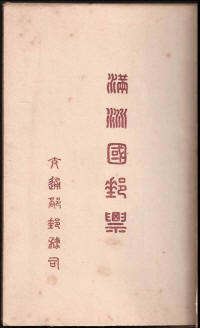 滿洲國郵票
交通部郵務司